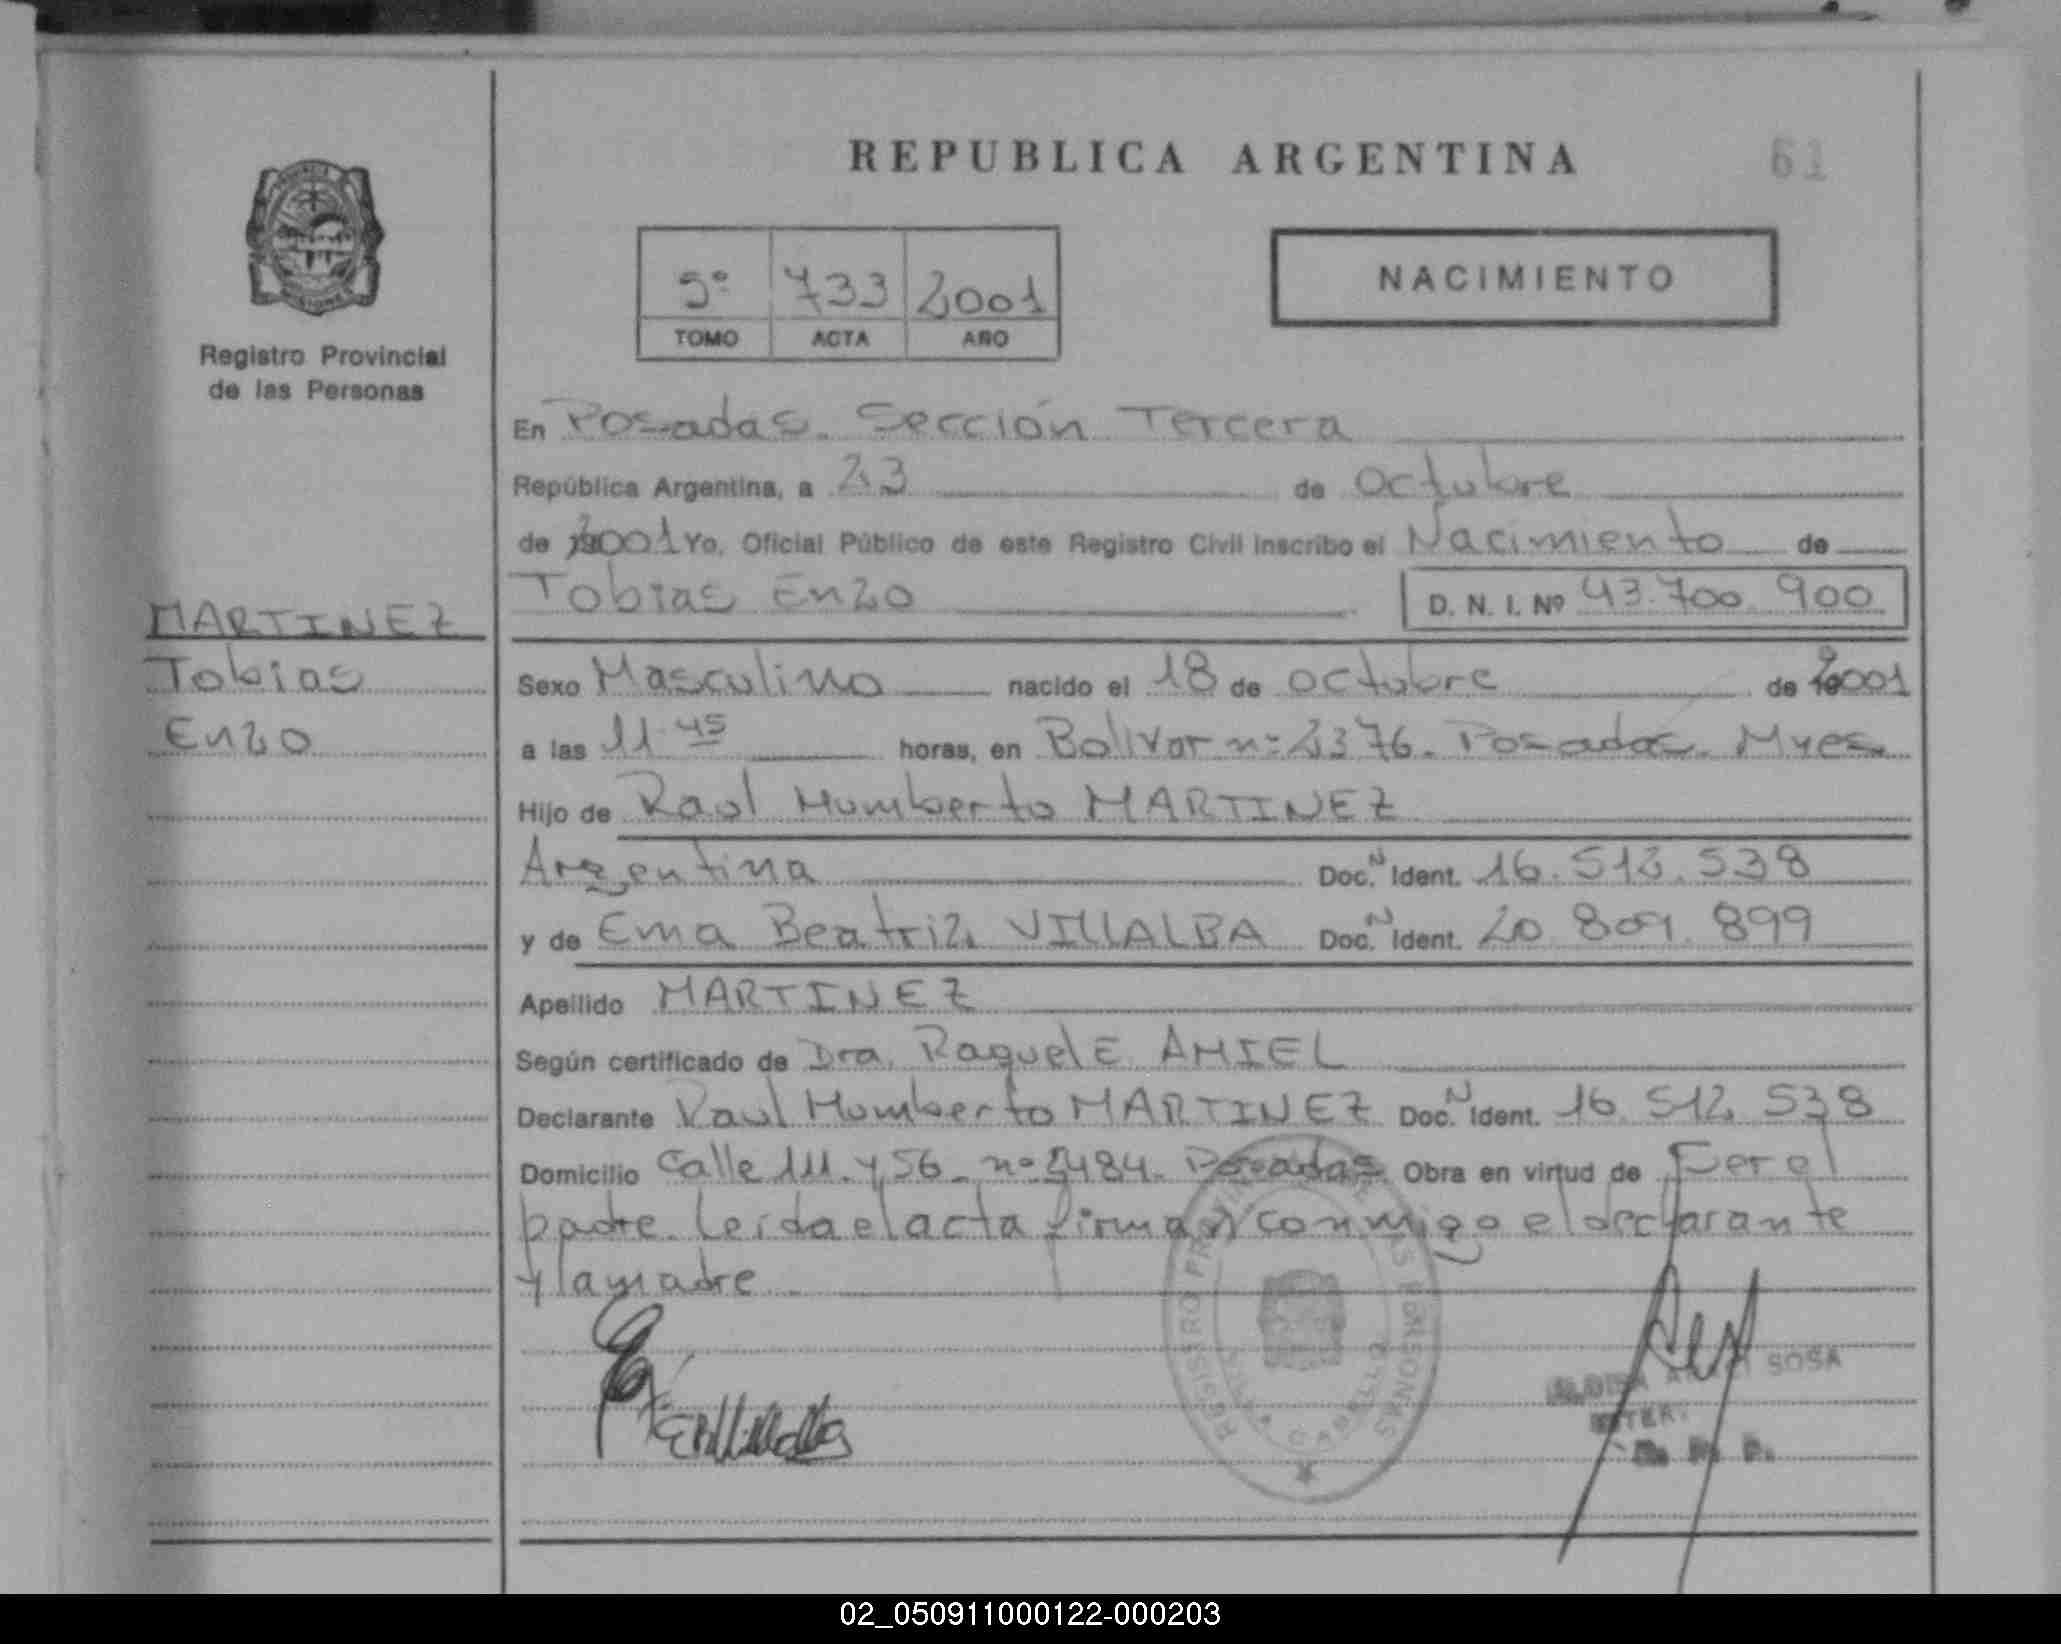 REPUBLICA ARGENTINA
61
5º 733 2001
TOMO ACTA AÑO
NACIMIENTO
Registro Provincial
de las Personas
En Posadas. Sección Tercera
República Argentina, a 23 de Octubre
de 2001 Yo, Oficial Público de este Registro Civil inscribo el Nacimiento de
Tobias Enzo D. N. I. Nº 43.700.900
MARTINEZ
Tobias
Enzo
Sexo Masculino nacido el 18 de octubre de 2001
a las 11.45 horas, en Bolivar nº 2376. Posadas. Mnes
Hijo de Raul Humberto MARTINEZ
Argentina Doc. N Ident. 16.512.538
y de Ema Beatriz VILLALBA Doc. N Ident. 20.809.899
Apellido MARTINEZ
Según certificado de Dra. Raquel E. AMIEL
Declarante Raul Humberto MARTINEZ Doc. N Ident. 16.512.538
Domicilio Calle 111 y 56 nº 5484. Posadas Obra en virtud de Ser el
padre. Leida el acta firman conmigo el declarante
y la madre
REGISTRO PROVINCIAL DE LAS PERSONAS
SOSA
R. P. P.
02_050911000122-000203